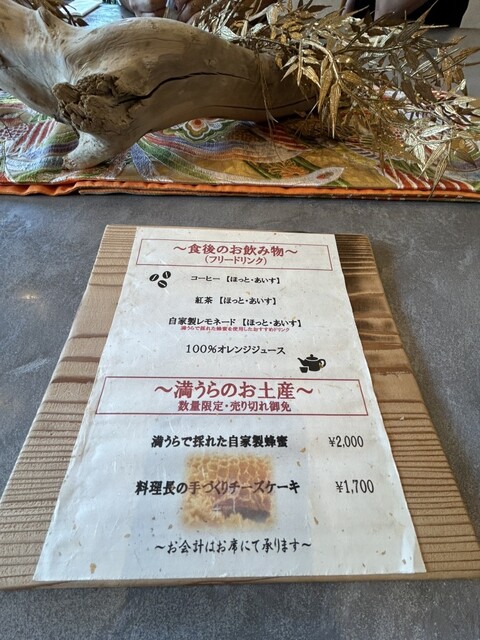 ～食後のお飲み物～
(フリードリンク)
コーヒー 【ほっと・あいす】
紅茶 【ほっと・あいす】
自家製レモネード 【ほっと・あいす】
満うらで採れた蜂蜜を使用したおすすめドリンク
100%オレンジジュース
～満うらのお土産～
数量限定・売り切れ御免
満うらで採れた自家製蜂蜜 ¥2,000
料理長の手づくりチーズケーキ ¥1,700
～お会計はお席にて承ります～